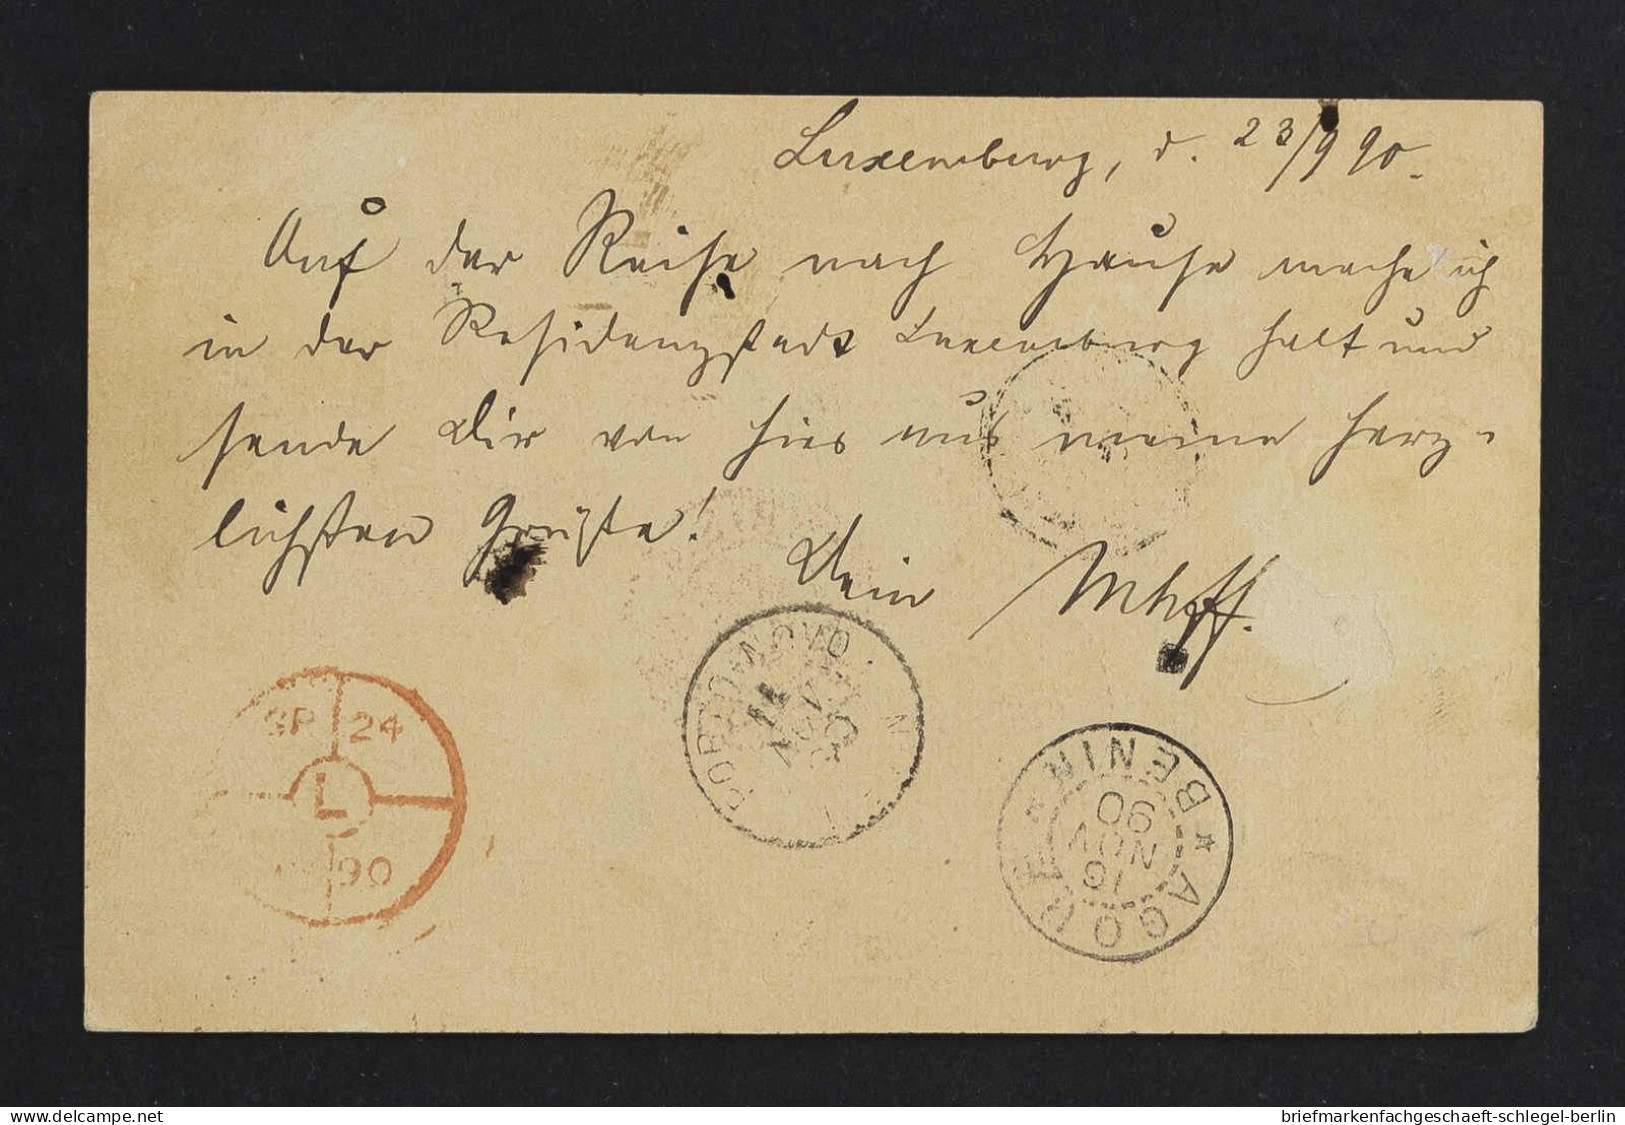 Luxemburg, d. 23/9 90.
Auf der Reise nach Hause mache ich
in der Residenzstadt Luxemburg halt und
sende Dir von hier aus meine herz-
lichsten Grüße!
Dein
PORTO-NOVO
BENIN
AGOUÉ
16
NOV
90
SP 24
L
90
briefmarkenfachgeschaeft-schlegel-berlin